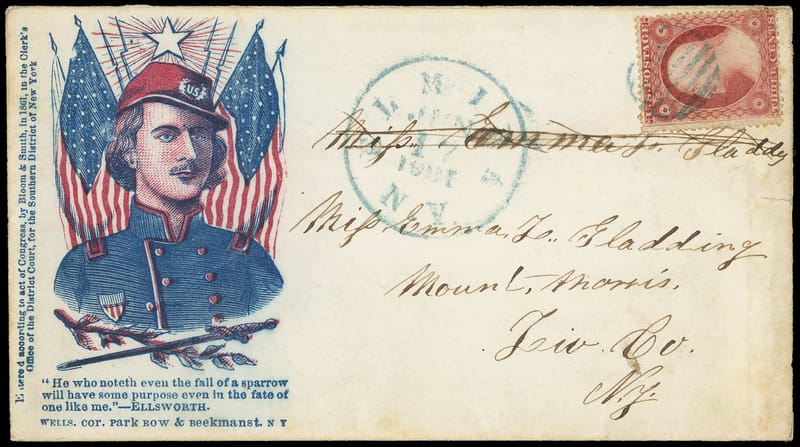 Entered according to act of Congress, by Bloom & Smith, in 1861, in the Clerk's
Office of the District Court, for the Southern District of New York
US
"He who noteth even the fall of a sparrow
will have some purpose even in the fate of
one like me."—ELLSWORTH.
WELLS. cor. Park Row & Beekmanst. N Y
JUN
17
1861
N.Y.
U.S. POSTAGE
THREE CENTS
Miss. Emma L. Gladdy
Miss Emma L. Gladding
Mount, Morris,
Liv. Co.
N.Y.